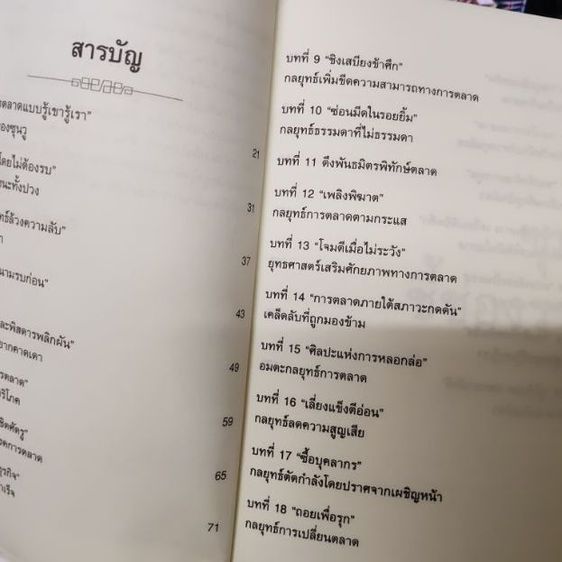 สารบัญ
ตลาดแบบรู้เขารู้เรา"
ของซุนวู
21
โดยไม่ต้องรบ"
ชนะทั้งปวง
31
ล้วงความลับ"
37
นามรบก่อน"
43
และพิสดารพลิกผัน"
ยากคาดเดา
49
ตลาด"
บริโภค
59
การตลาด
65
71
บทที่ 9 "ชิงเสบียงข้าศึก"
กลยุทธ์เพิ่มขีดความสามารถทางการตลาด
บทที่ 10 "ซ่อนมีดในรอยยิ้ม"
กลยุทธ์ธรรมดาที่ไม่ธรรมดา
บทที่ 11 ดึงพันธมิตรพิทักษ์ตลาด
บทที่ 12 "เพลิงพิฆาต"
กลยุทธ์การตลาดตามกระแส
บทที่ 13 "โจมตีเมื่อไม่ระวัง"
ยุทธศาสตร์เสริมศักยภาพทางการตลาด
บทที่ 14 "การตลาดภายใต้สภาวะกดดัน"
เคล็ดลับที่ถูกมองข้าม
บทที่ 15 "ศิลปะแห่งการหลอกล่อ"
อมตะกลยุทธ์การตลาด
บทที่ 16 "เลี่ยงแข็งตีอ่อน"
กลยุทธ์ลดความสูญเสีย
บทที่ 17 "ซื้อบุคลากร"
กลยุทธ์ตัดกำลังโดยปราศจากเผชิญหน้า
บทที่ 18 "ถอยเพื่อรุก"
กลยุทธ์การเปลี่ยนตลาด